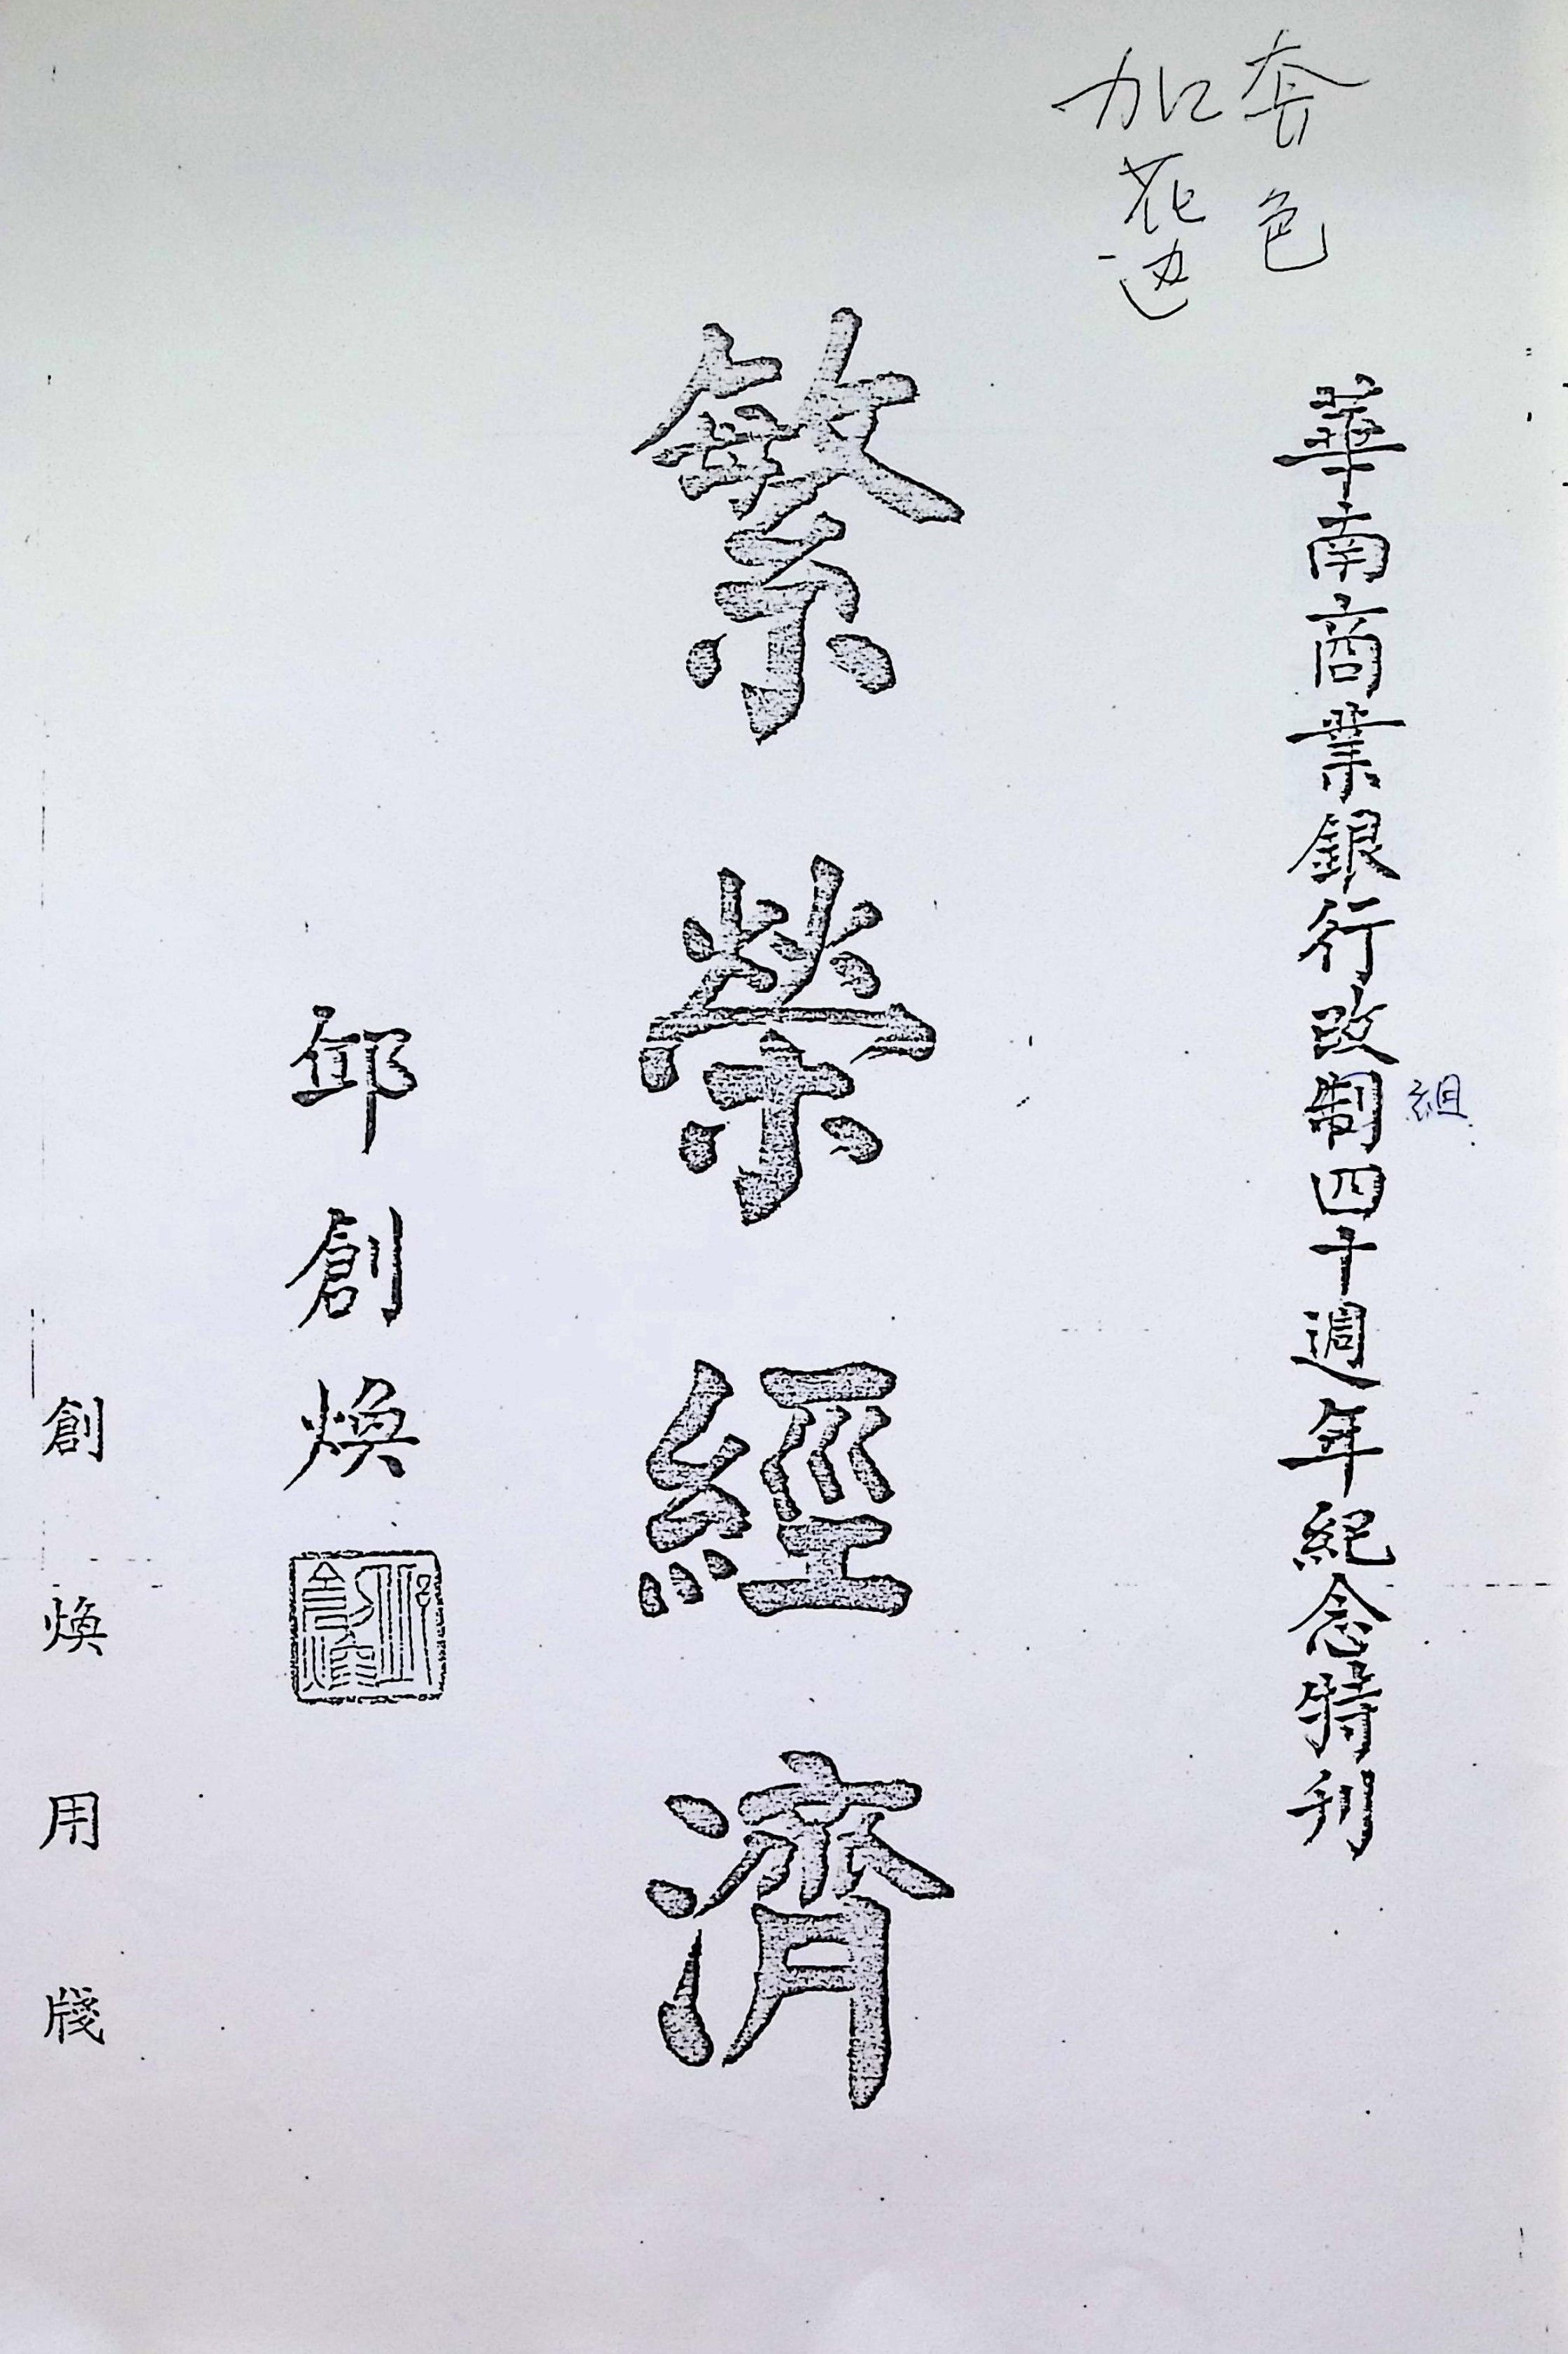 套色
加花边
華南商業銀行改制四十週年紀念特刊
組
繁榮經濟
邱創煥
創煥用牋